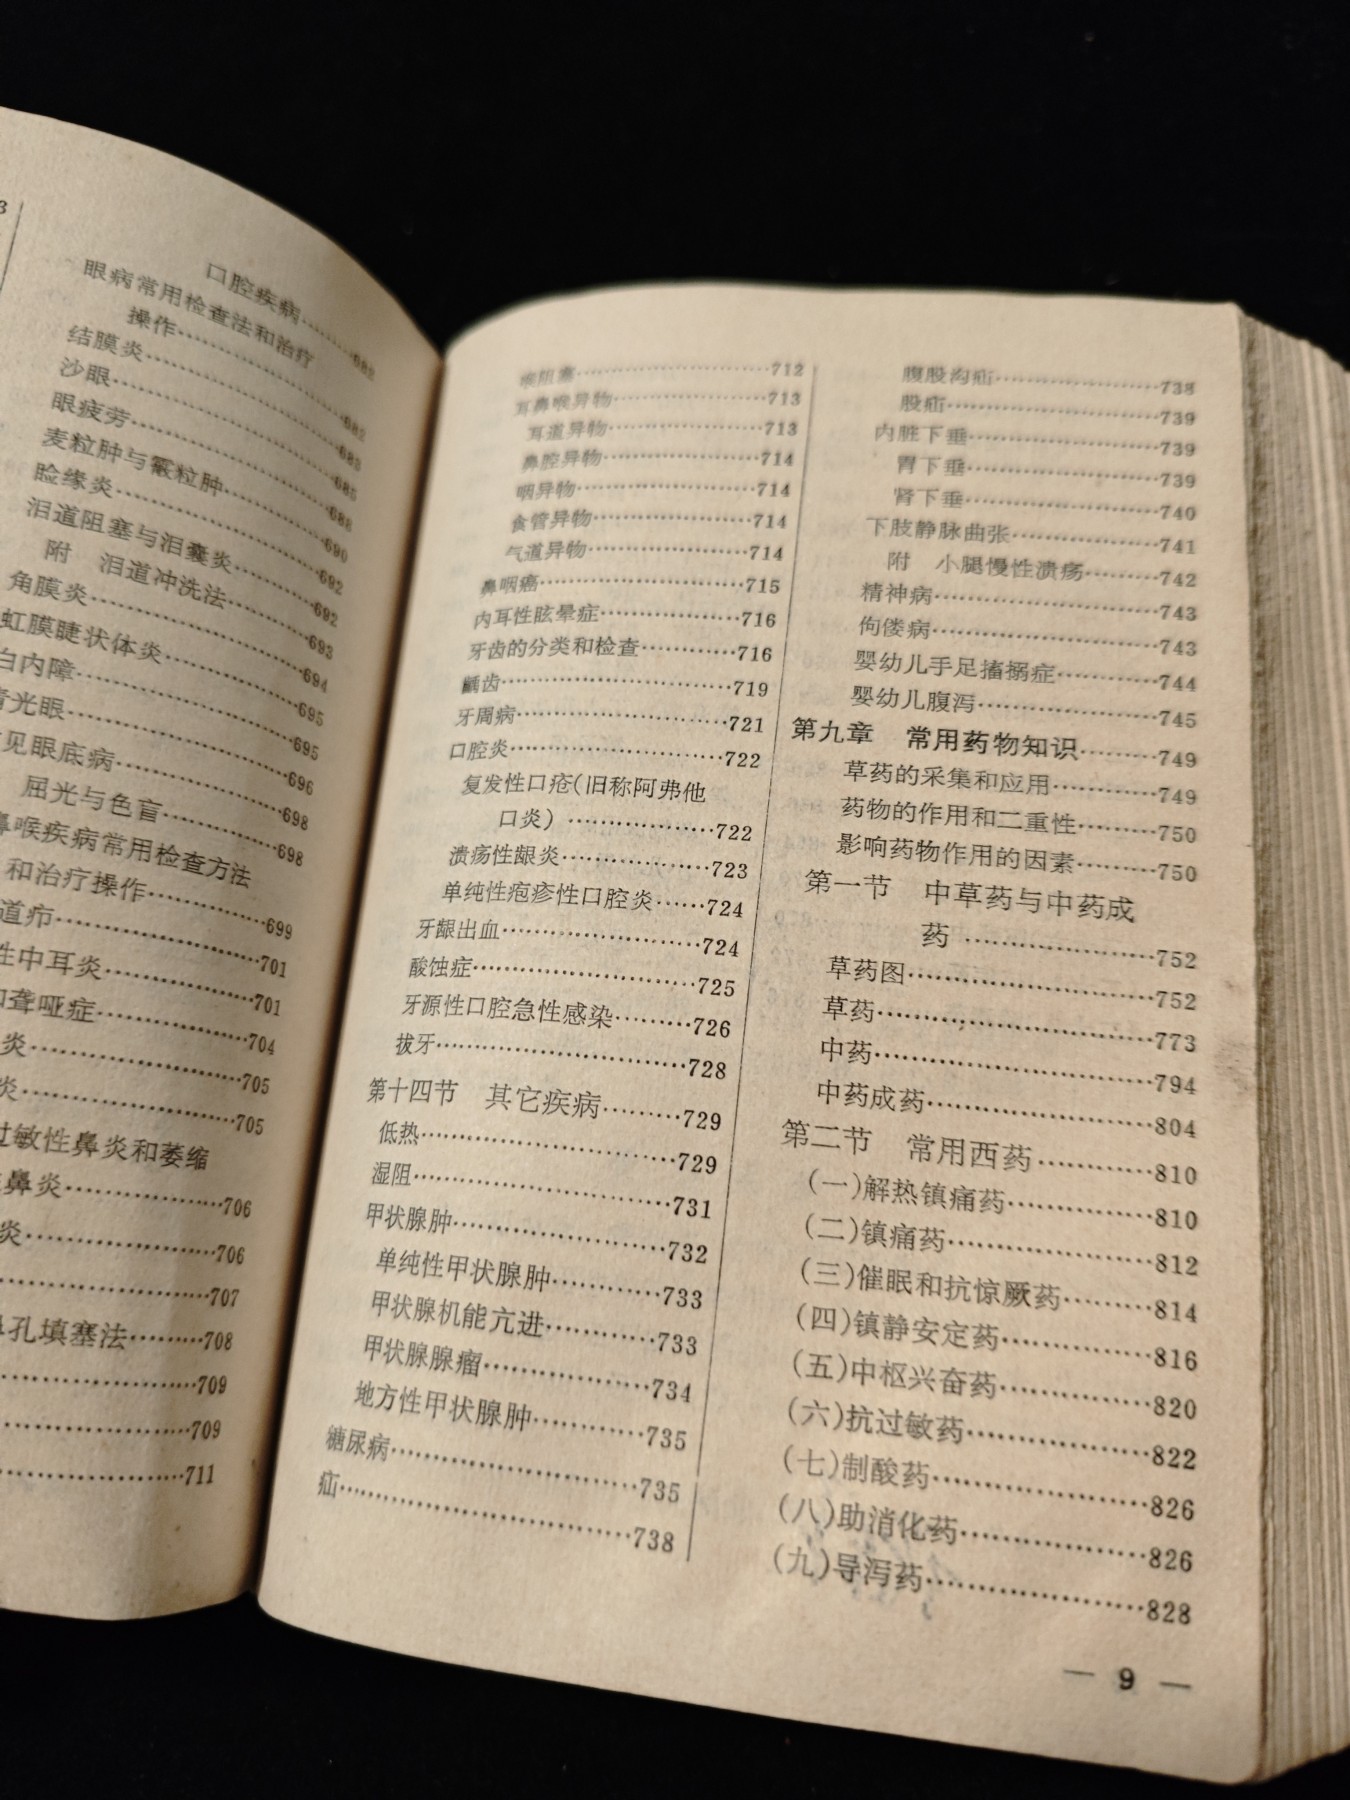 3
口腔疾病………682
眼病常用检查法和治疗
操作………682
结膜炎………682
沙眼………683
眼疲劳………685
麦粒肿与霰粒肿………688
睑缘炎………690
泪道阻塞与泪囊炎………692
附　泪道冲洗法………692
角膜炎………693
虹膜睫状体炎………694
白内障………695
青光眼………695
见眼底病………696
屈光与色盲………698
鼻喉疾病常用检查方法………698
和治疗操作………699
道疖………701
性中耳炎………701
聋哑症………704
炎………705
炎………705
过敏性鼻炎和萎缩
鼻炎………706
炎………706
………707
鼻孔填塞法………708
………709
………709
………711
喉阻塞………712
耳鼻喉异物………713
耳道异物………713
鼻腔异物………714
咽异物………714
食管异物………714
气道异物………714
鼻咽癌………715
内耳性眩晕症………716
牙齿的分类和检查………716
龋齿………719
牙周病………721
口腔炎………722
复发性口疮(旧称阿弗他
口炎)………722
溃疡性龈炎………723
单纯性疱疹性口腔炎……724
牙龈出血………724
酸蚀症………725
牙源性口腔急性感染………726
拔牙………728
第十四节　其它疾病………729
低热………729
湿阻………731
甲状腺肿………732
单纯性甲状腺肿………733
甲状腺机能亢进………733
甲状腺腺瘤………734
地方性甲状腺肿………735
糖尿病………735
疝………738
腹股沟疝………738
股疝………739
内脏下垂………739
胃下垂………739
肾下垂………740
下肢静脉曲张………741
附　小腿慢性溃疡………742
精神病………743
佝偻病………743
婴幼儿手足搐搦症………744
婴幼儿腹泻………745
第九章　常用药物知识………749
草药的采集和应用………749
药物的作用和二重性………750
影响药物作用的因素………750
第一节　中草药与中药成
药………752
草药图………752
草药………773
中药………794
中药成药………804
第二节　常用西药………810
(一)解热镇痛药………810
(二)镇痛药………812
(三)催眠和抗惊厥药………814
(四)镇静安定药………816
(五)中枢兴奋药………820
(六)抗过敏药………822
(七)制酸药………826
(八)助消化药………826
(九)导泻药………828
— 9 —